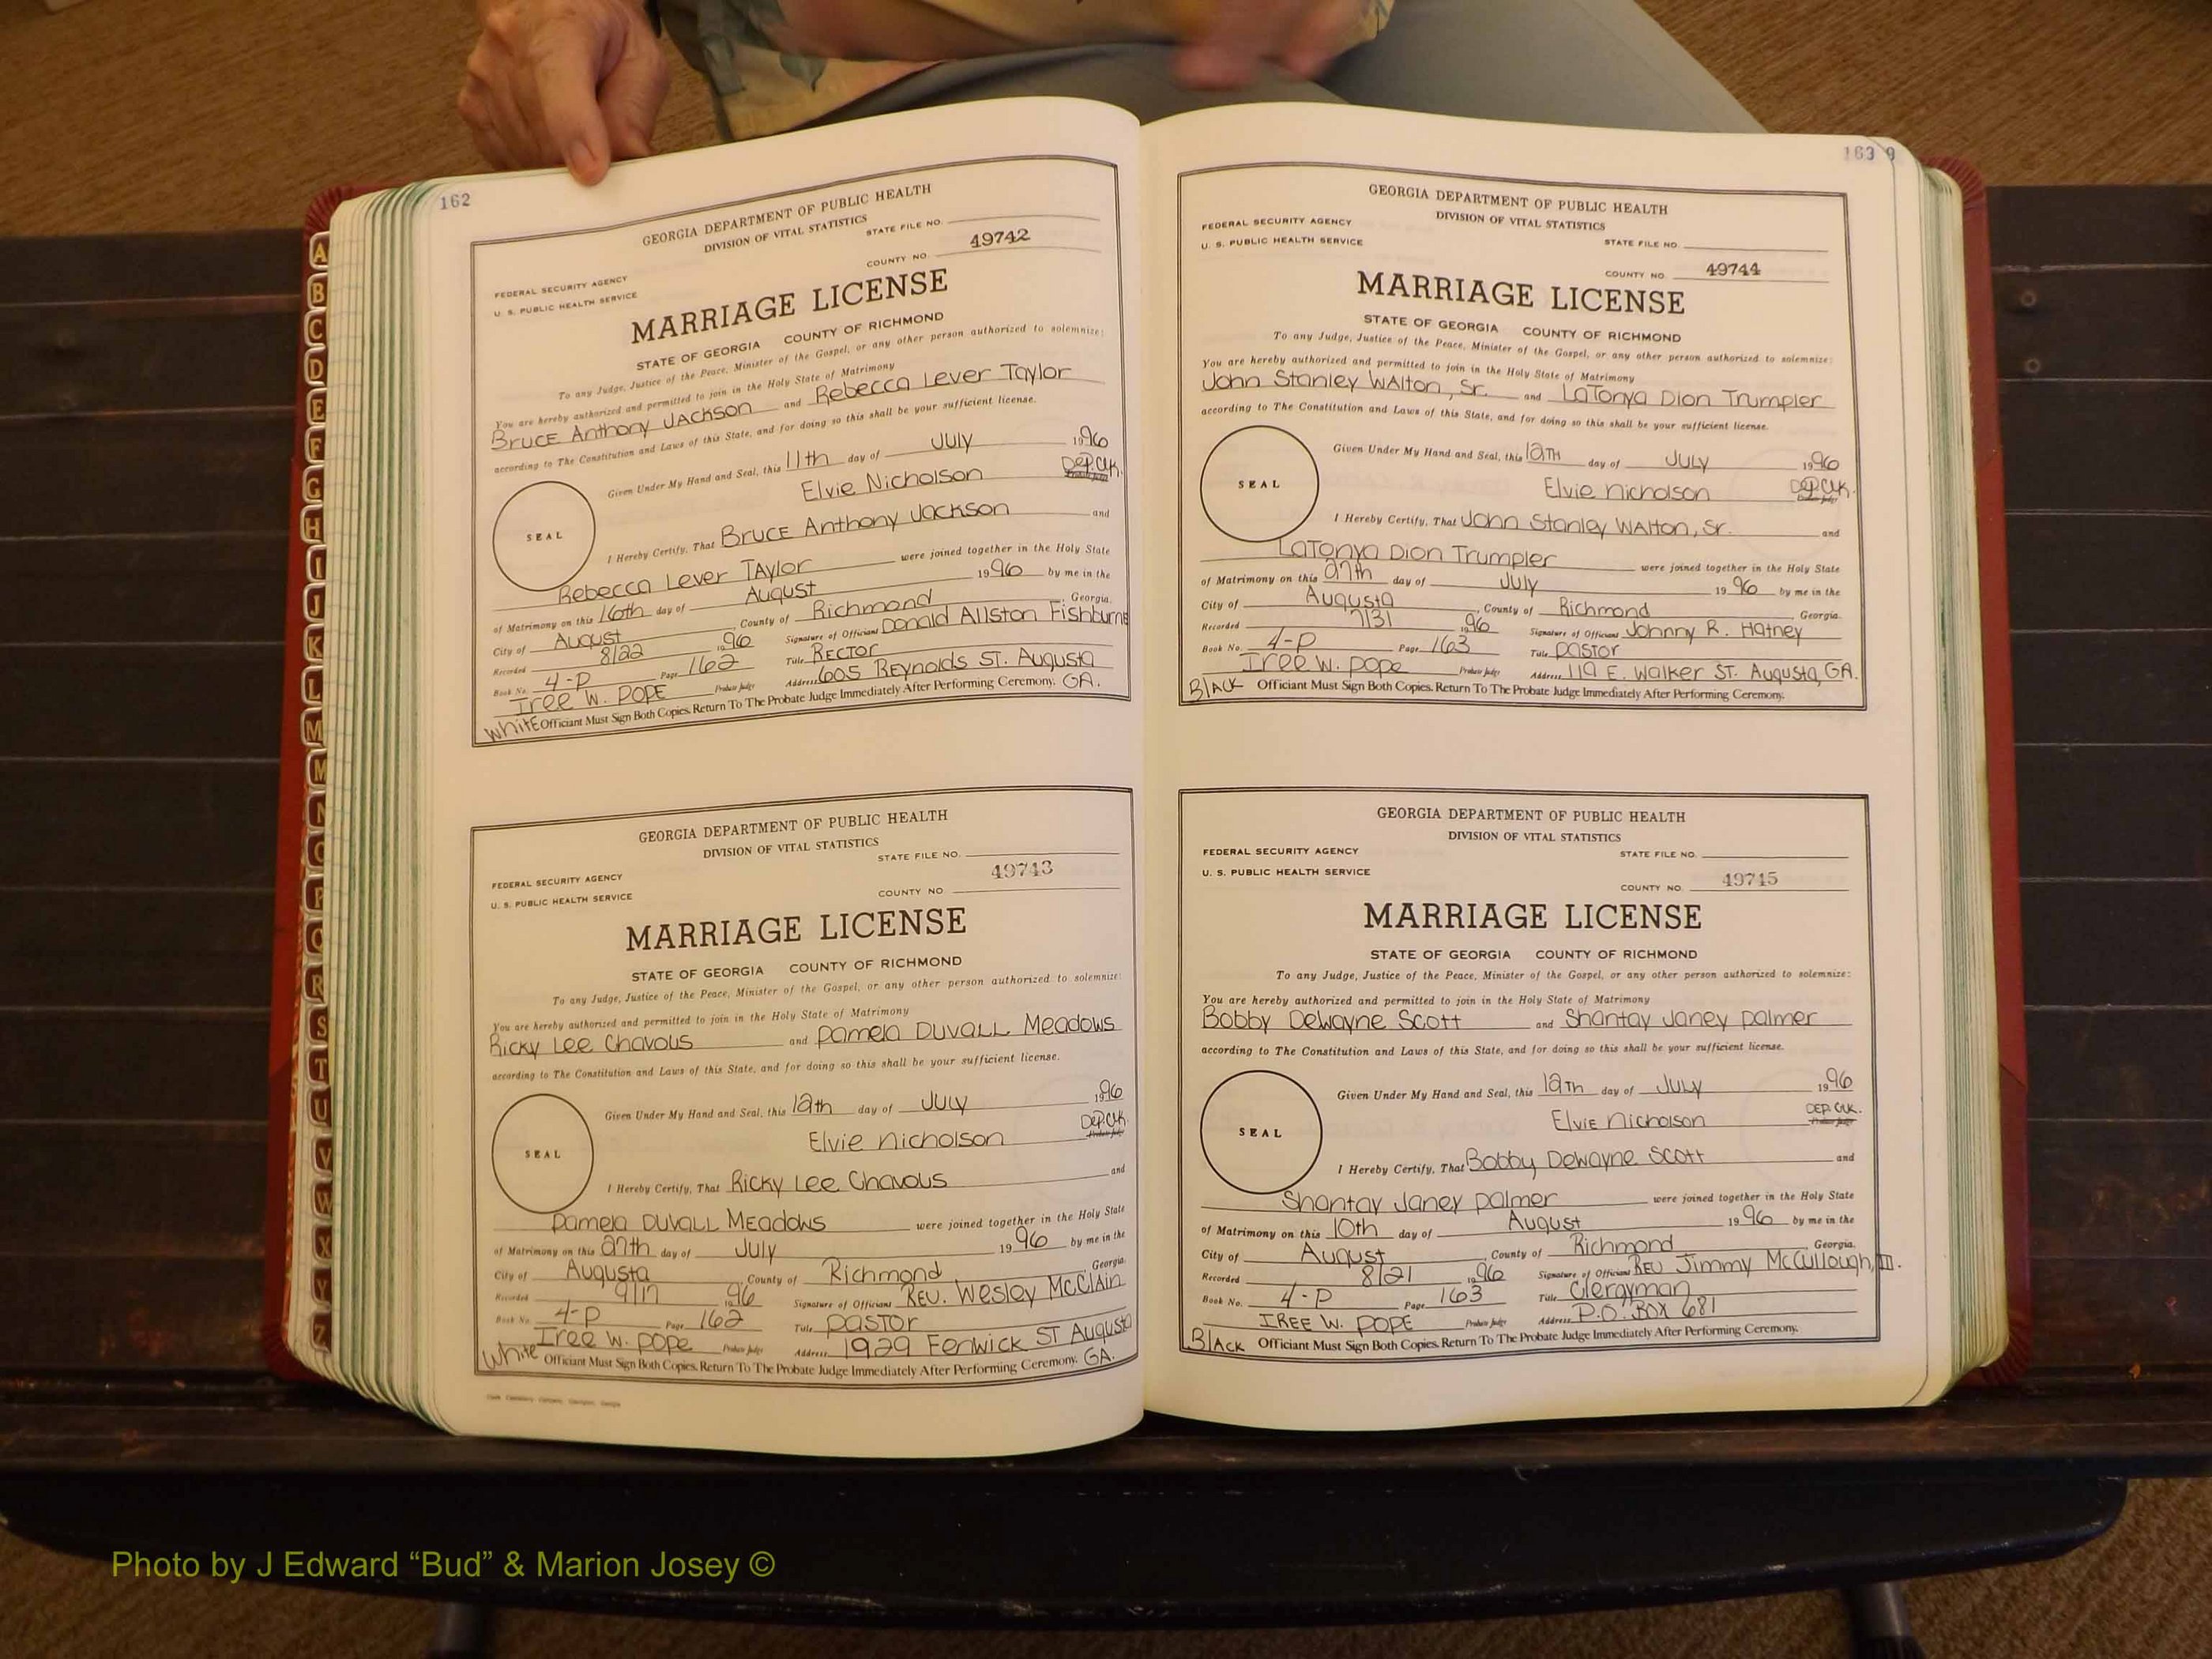 162
GEORGIA DEPARTMENT OF PUBLIC HEALTH
DIVISION OF VITAL STATISTICS
STATE FILE NO.
COUNTY NO. 49742
FEDERAL SECURITY AGENCY
U. S. PUBLIC HEALTH SERVICE
MARRIAGE LICENSE
STATE OF GEORGIA COUNTY OF RICHMOND
To any Judge, Justice of the Peace, Minister of the Gospel, or any other person authorized to solemnize:
You are hereby authorized and permitted to join in the Holy State of Matrimony
Bruce Anthony Jackson and Rebecca Lever Taylor
according to The Constitution and Laws of this State, and for doing so this shall be your sufficient license.
Given Under My Hand and Seal, this 11th day of July 1996
SEAL
Elvie Nicholson Dep. Clk.
I Hereby Certify, That Bruce Anthony Jackson and
Rebecca Lever Taylor were joined together in the Holy State
of Matrimony on this 16th day of August 1996 by me in the
City of August, County of Richmond Georgia.
Recorded 8/22 1996 Signature of Officiant Donald Allston Fishburne
Book No. 4-P Page 162 Title Rector
Iree W. Pope Probate Judge Address 605 Reynolds St. Augusta GA.
White Officiant Must Sign Both Copies. Return To The Probate Judge Immediately After Performing Ceremony.
GEORGIA DEPARTMENT OF PUBLIC HEALTH
DIVISION OF VITAL STATISTICS
STATE FILE NO.
COUNTY NO 49743
FEDERAL SECURITY AGENCY
U. S. PUBLIC HEALTH SERVICE
MARRIAGE LICENSE
STATE OF GEORGIA COUNTY OF RICHMOND
To any Judge, Justice of the Peace, Minister of the Gospel, or any other person authorized to solemnize:
You are hereby authorized and permitted to join in the Holy State of Matrimony
Ricky Lee Chavous and Pamela Duvall Meadows
according to The Constitution and Laws of this State, and for doing so this shall be your sufficient license.
Given Under My Hand and Seal, this 12th day of July 1996
SEAL
Elvie Nicholson Dep. Clk.
I Hereby Certify, That Ricky Lee Chavous and
Pamela Duvall Meadows were joined together in the Holy State
of Matrimony on this 27th day of July 1996 by me in the
City of Augusta, County of Richmond Georgia.
Recorded 9/17 1996 Signature of Officiant Rev. Wesley McClain
Book No. 4-P Page 162 Title Pastor
Iree W. Pope Probate Judge Address 1929 Fenwick St Augusta GA.
White Officiant Must Sign Both Copies. Return To The Probate Judge Immediately After Performing Ceremony.
163 9
GEORGIA DEPARTMENT OF PUBLIC HEALTH
DIVISION OF VITAL STATISTICS
FEDERAL SECURITY AGENCY
U. S. PUBLIC HEALTH SERVICE
STATE FILE NO.
COUNTY NO. 49744
MARRIAGE LICENSE
STATE OF GEORGIA COUNTY OF RICHMOND
To any Judge, Justice of the Peace, Minister of the Gospel, or any other person authorized to solemnize:
You are hereby authorized and permitted to join in the Holy State of Matrimony
John Stanley Walton, Sr. and LaTonya Dion Trumpler
according to The Constitution and Laws of this State, and for doing so this shall be your sufficient license.
Given Under My Hand and Seal, this 12th day of July 1996
SEAL
Elvie Nicholson Dep. Clk.
I Hereby Certify, That John Stanley Walton, Sr. and
LaTonya Dion Trumpler were joined together in the Holy State
of Matrimony on this 27th day of July 1996 by me in the
City of Augusta, County of Richmond Georgia.
Recorded 7/31 1996 Signature of Officiant Johnny R. Hatney
Book No. 4-P Page 163 Title Pastor
Iree W. Pope Probate Judge Address 119 E. Walker St. Augusta, GA.
Black Officiant Must Sign Both Copies. Return To The Probate Judge Immediately After Performing Ceremony.
GEORGIA DEPARTMENT OF PUBLIC HEALTH
DIVISION OF VITAL STATISTICS
FEDERAL SECURITY AGENCY
U. S. PUBLIC HEALTH SERVICE
STATE FILE NO.
COUNTY NO. 49745
MARRIAGE LICENSE
STATE OF GEORGIA COUNTY OF RICHMOND
To any Judge, Justice of the Peace, Minister of the Gospel, or any other person authorized to solemnize:
You are hereby authorized and permitted to join in the Holy State of Matrimony
Bobby Dewayne Scott and Shantay Janey Palmer
according to The Constitution and Laws of this State, and for doing so this shall be your sufficient license.
Given Under My Hand and Seal, this 12th day of July 1996
SEAL
Elvie Nicholson Dep. Clk.
I Hereby Certify, That Bobby Dewayne Scott and
Shantay Janey Palmer were joined together in the Holy State
of Matrimony on this 10th day of August 1996 by me in the
City of August, County of Richmond Georgia.
Recorded 8/21 1996 Signature of Officiant Rev Jimmy McCullough, III.
Book No. 4-P Page 163 Title Clergyman
Iree W. Pope Probate Judge Address P.O. Box 681
Black Officiant Must Sign Both Copies. Return To The Probate Judge Immediately After Performing Ceremony.
A
B
C
D
E
F
G
H
I
J
K
L
M
N
O
P
Q
R
S
T
U
V
W
X
Y
Z
Photo by J Edward “Bud” & Marion Josey ©